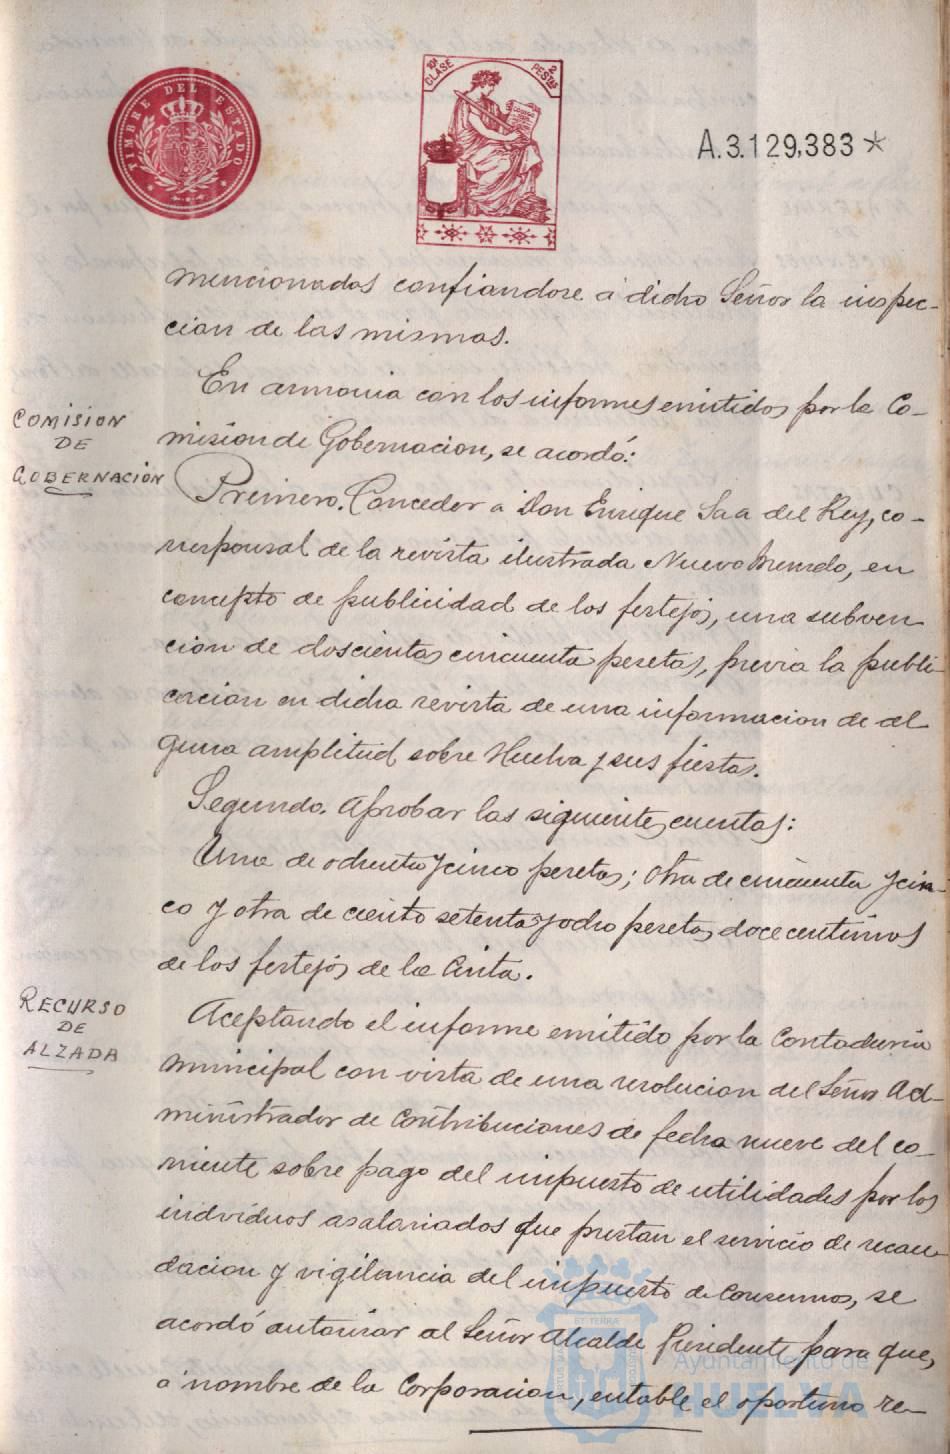 TIMBRE DEL ESTADO
10ª CLASE 2 PESTAS
A.3.129,383 *
mencionadas confiandose á dicho Señor la inspec-
cion de las mismas.
En armonia con los informes emitidos por la Co-
COMISION
DE
GOBERNACIÓN
mision de Gobernacion, se acordó:
Primero. Conceder a Don Enrique Saa del Rey, co-
rresponsal de la revista ilustrada Nuevo Mundo, en
concepto de publicidad de los festejos, una subven
cion de doscientas cincuenta pesetas, previa la publi-
cacion en dicha revista de una informacion de al
guna amplitud sobre Huelva y sus fiestas.
Segundo. Aprobar las siguientes cuentas:
Una de ochenta y cinco pesetas; otra de cincuenta y cin-
co y otra de ciento setenta y ocho pesetas doce centimos
de los festejos de la Cinta.
RECURSO
DE
ALZADA
Aceptando el informe emitido por la Contaduria
municipal con vista de una resolucion del Señor Ad-
ministrador de Contribuciones de fecha nueve del co-
rriente sobre pago del impuesto de utilidades por los
individuos asalariados que prestan el servicio de recau-
dacion y vigilancia del impuesto de Consumos, se
acordó autorizar al Señor Alcalde Presidente para que,
a nombre de la Corporacion, entable el oportuno re-
Ayuntamiento de
HUELVA